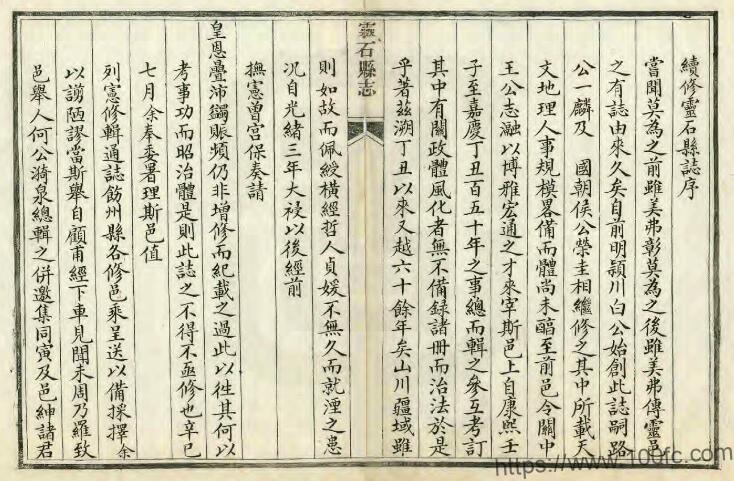 續修靈石縣誌序
嘗聞莫為之前雖美弗彰莫為之後雖美弗傳靈邑
之有誌由來久矣自前明潁川白公始創此誌嗣路
公一麟及 國朝侯公榮圭相繼修之其中所載天
文地理人事規模畧備而體尚未醕至前邑令關中
王公志瀜以博雅宏通之才來宰斯邑上自康熙壬
子至嘉慶丁丑百五十年之事總而輯之參互考訂
其中有關政體風化者無不備録諸冊而治法於是
乎著茲溯丁丑以來又越六十餘年矣山川疆域雖
靈石縣志
則如故而佩綬橫經哲人貞媛不無久而就湮之患
況自光緒三年大祲以後經前
撫憲曾宮保奏請
皇恩疊沛蠲賑頻仍非增修而紀載之過此以徃其何以
考事功而昭治體是則此誌之不得不亟修也辛巳
七月余奉委署理斯邑值
列憲修輯通誌飭州縣各修邑乘呈送以備採擇余
以謭陋謬當斯舉自顧甫經下車見聞未周乃羅致
邑舉人何公漪泉總輯之併邀集同寅及邑紳諸君
https://www.109fc.com